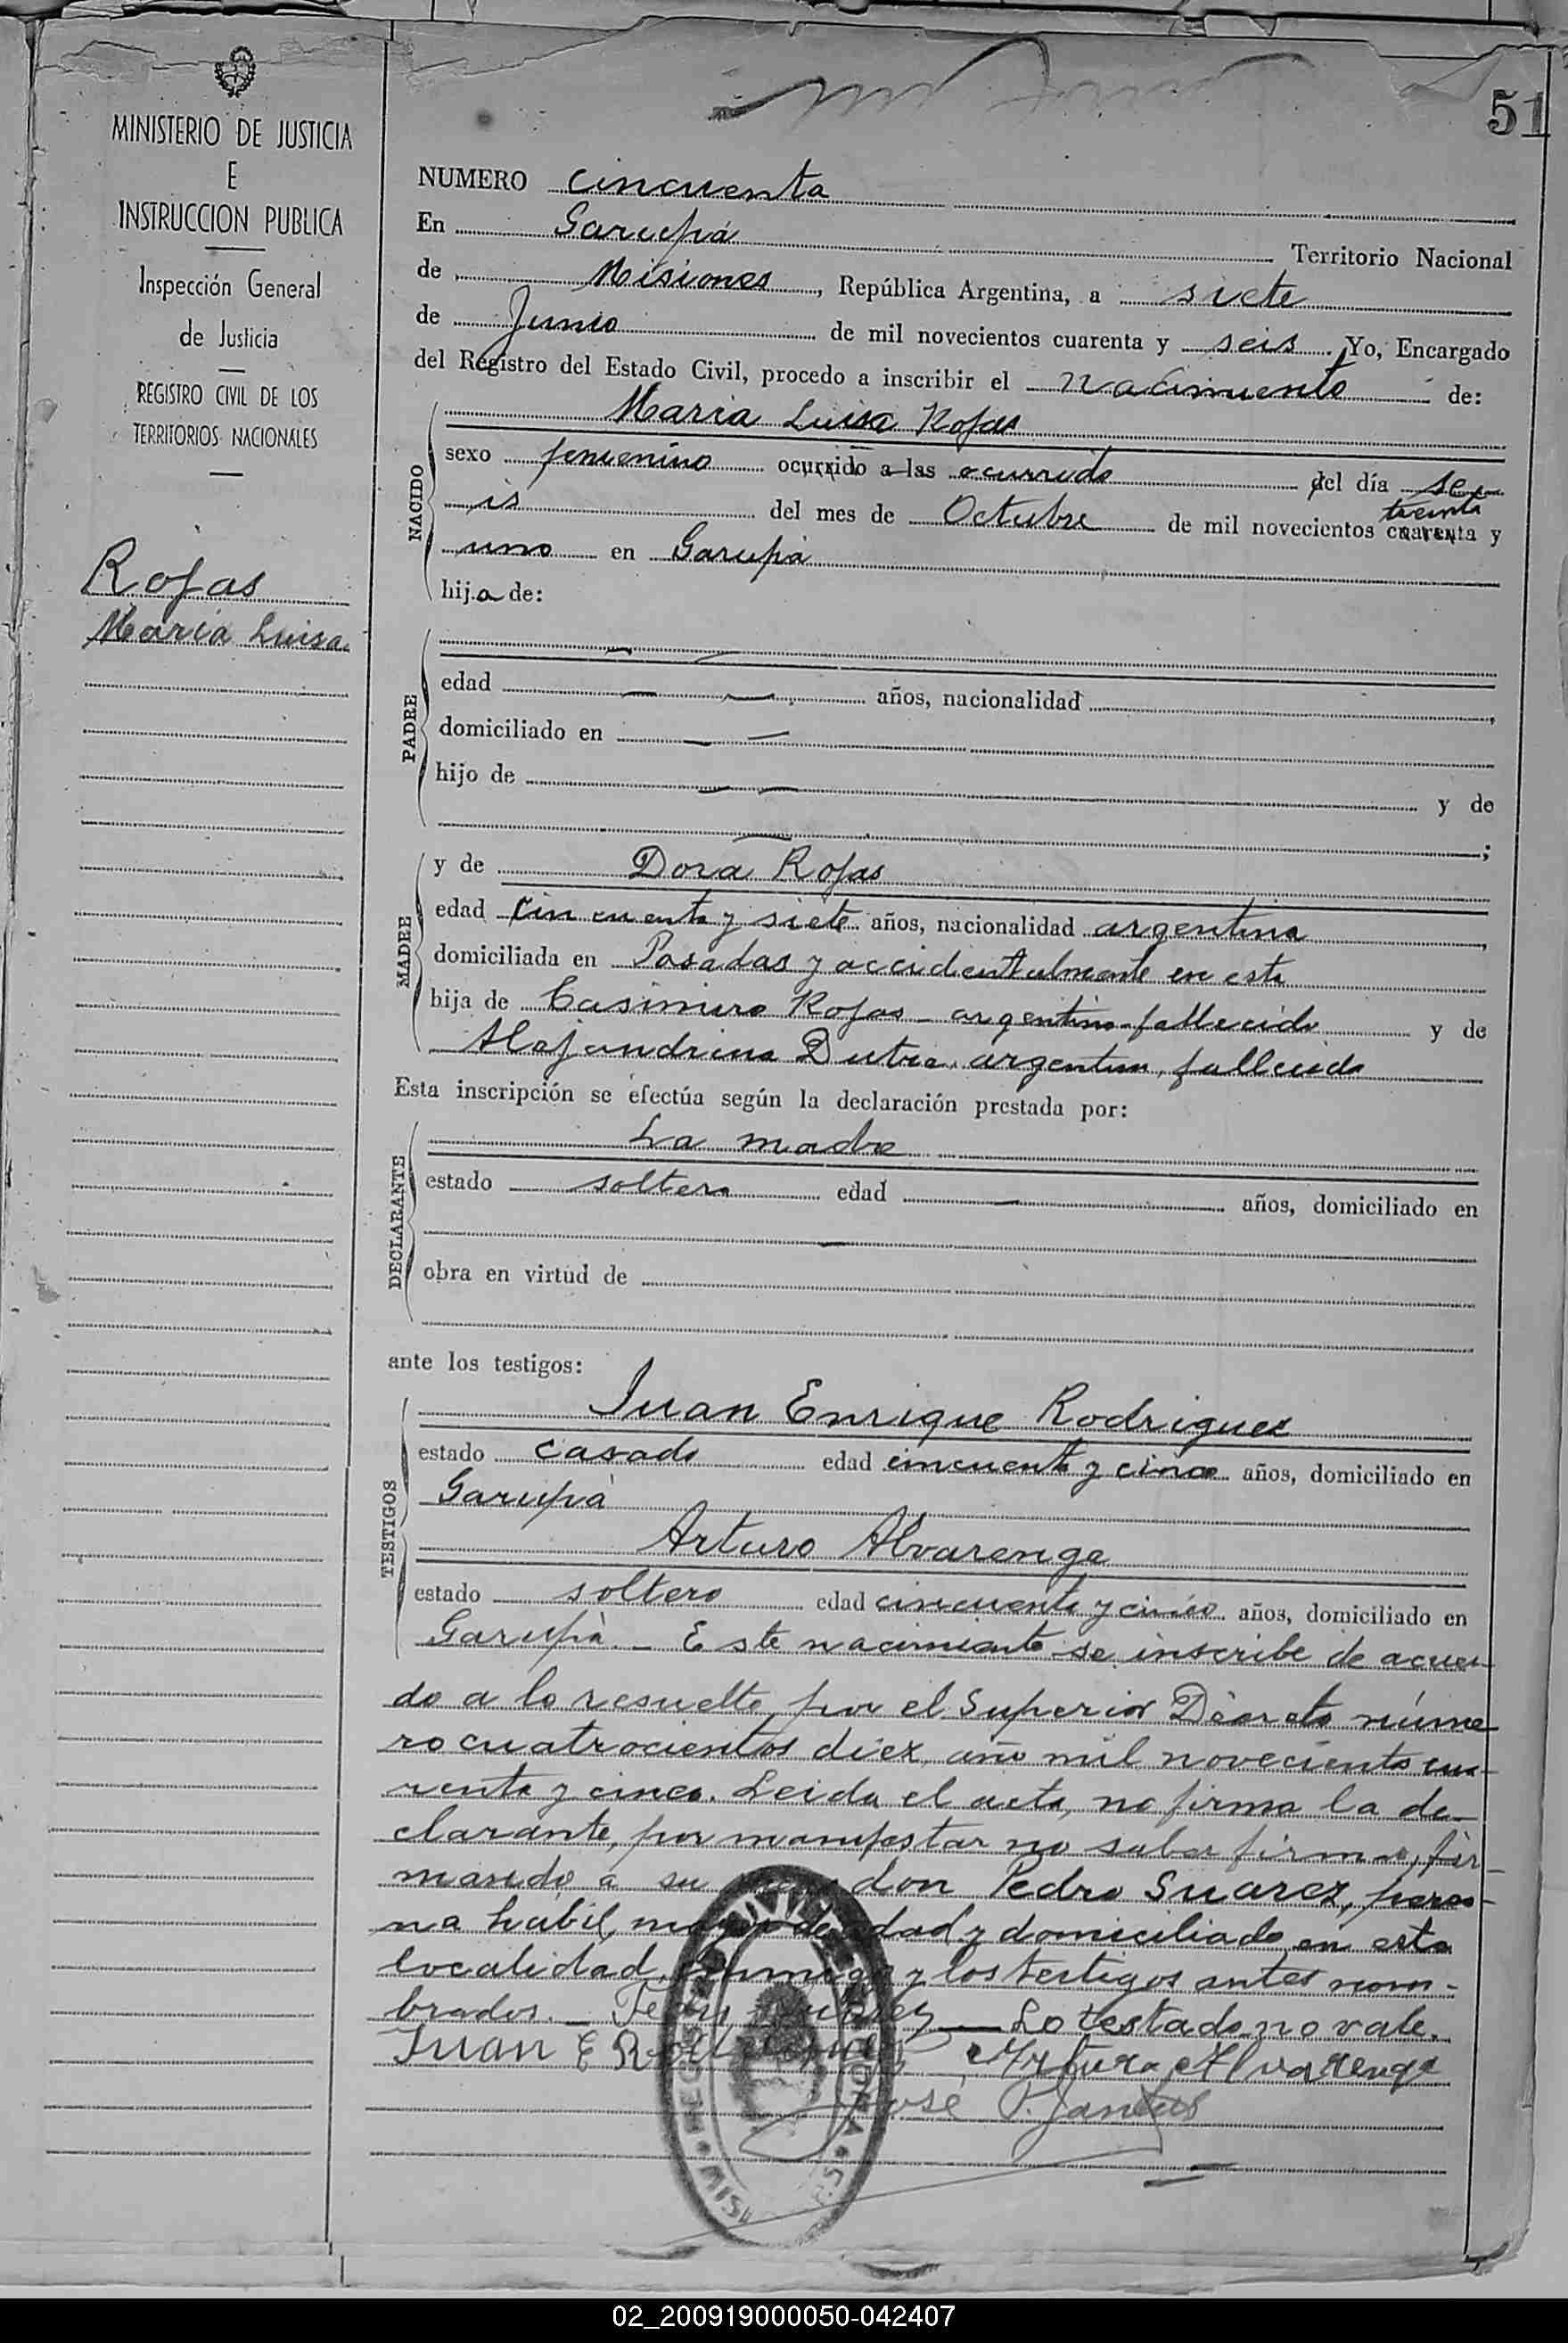 51
MINISTERIO DE JUSTICIA
E
INSTRUCCION PUBLICA
Inspección General
de Justicia
REGISTRO CIVIL DE LOS
TERRITORIOS NACIONALES
Rojas
Maria Luisa
NUMERO cincuenta
En Garupá Territorio Nacional
de Misiones, República Argentina, a siete
de Junio de mil novecientos cuarenta y seis. Yo, Encargado
del Registro del Estado Civil, procedo a inscribir el nacimiento de:
NACIDO
Maria Luisa Rojas
sexo femenino ocurrido a las ocurrido del día se-
is del mes de Octubre de mil novecientos cuarenta treinta y
uno en Garupá
hija de:
PADRE
edad años, nacionalidad
domiciliado en
hijo de y de
;
MADRE
y de Dora Rojas
edad cincuenta y siete años, nacionalidad argentina
domiciliada en Posadas y accidentalmente en esta
hija de Casimiro Rojas - argentino fallecido y de
Alejandrina Dutra, argentina, fallecida
Esta inscripción se efectúa según la declaración prestada por:
DECLARANTE
La madre
estado soltera edad años, domiciliado en
obra en virtud de
ante los testigos:
TESTIGOS
Juan Enrique Rodriguez
estado casado edad cincuenta y cinco años, domiciliado en
Garupá
Arturo Alvarenga
estado soltero edad cincuenta y cinco años, domiciliado en
Garupá. - Este nacimiento se inscribe de acuer-
do a lo resuelto por el Superior Decreto núme-
ro cuatrocientos diez, año mil novecientos cua-
renta y cinco. Leida el acta, no firma la de-
clarante, por manifestar no saber firmar, fir-
mando a su don Pedro Suarez, perso-
na habil, mayor de edad y domiciliado en esta
localidad, y los testigos antes nom-
brados. - Lo testado no vale.
Juan E Arturo Alvarenga
José P.
02_200919000050-042407